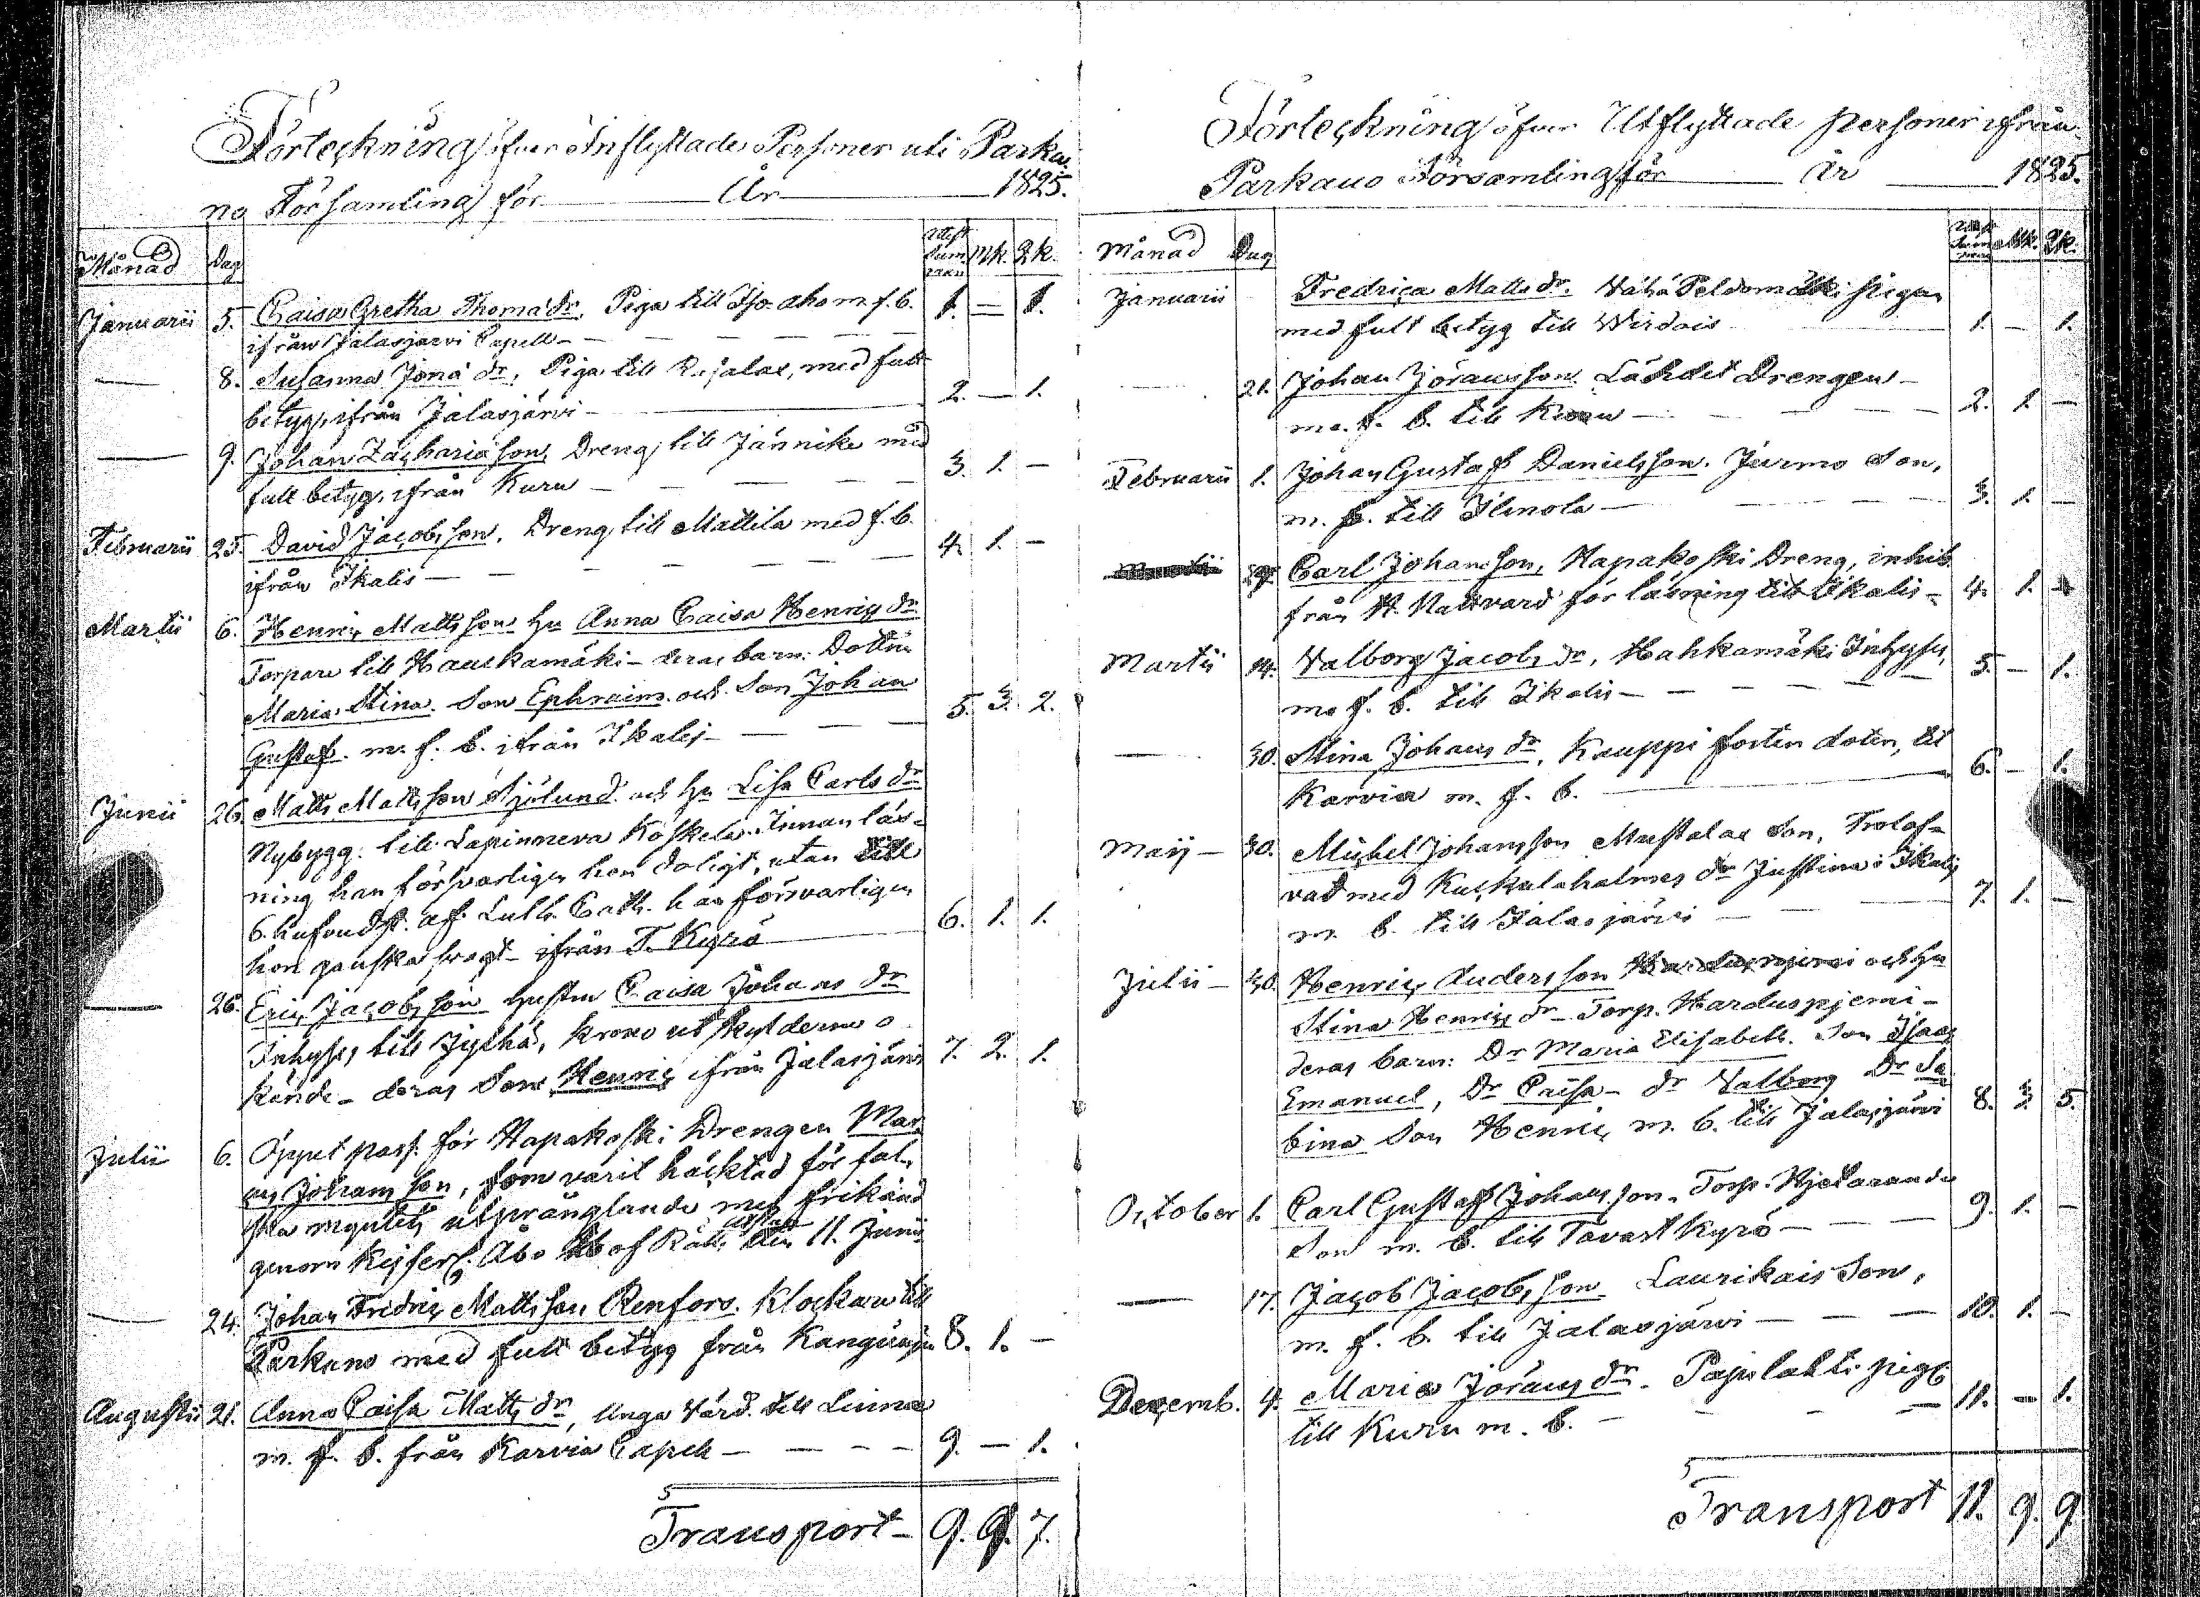 Förteckning öfver Inflyttade Personer uti Parka=
no Församling för År 1825.
Månad Dag Mk. Qk.
Januarii 5. Caisa Gretha Thomæ dr, Piga till Iso aho m. f. b. 1. — 1.
ifrån Jalasjärvi Capell —
— 8. Susanna Jona dr, Piga till R. jalas, med fult
betyg, ifrån Jalasjärvi — 2. — 1.
— 9. Johan Zachariasson, Dreng till Jännike med
fult betyg, ifrån Kuru — 3. 1. —
Februarii 25. David Jacobsson, Dreng till Mattila med f. b.
ifrån Ikalis — 4. 1. —
Martii 6. Henric Mattsson hu Anna Caisa Henrics dr
Torpare till Hauskamäki — deras barn: Dottrn
Maria Stina. Son Ephraim och Son Johan
Gustaf. m. f. b. ifrån Ikalis — 5. 3. 2.
Junii 26. Matts Mattsson Sjölund och hu Lisa Carls dr
Nybygg. till Lapinneva Koskela. Innan läs=
ning han försvarligen hon doligt, utan till
6. hufvudst. af Luth. Cath. han försvarligen
hon ganska svagt — ifrån T. Kyrö — 6. 1. 1.
— 26. Eric Jacobsson hustru Caisa Johans dr
Inhyses till Jyrhä, krono utskylderne o
kände — deras Son Henric ifrån Jalasjärvi 7. 2. 1.
Julii 6. Öppet pass. för Hapakoski Drengen Mar
cus Johansson, som varit häcktad för fal,
ska myntets utpränglande men frikänd
genom Kejserl. Åbo Hof Rätts utslag den 11. Junii
— 24. Johan Fredric Mattsson Renfors. Klockare till
Parkano med fult betyg från Kangasniemi 8. 1. —
Augustii 21. Anna Caisa Matts dr, unga Värd. till Linna
m. f. b. från Karvia Capell — 9. — 1.
Transport — 9. 9. 7.
Förteckning öfver Utflyttade personer ifrån
Parkano Församling för År 1825.
Månad Dag Mk. Qk.
Januarii Fredrica Matts dr. Vähä Peldomäki pigan
med fult betyg till Wirdois 1. — 1.
— 21. Johan Jöransson. Lähdet Drengen —
me. f. b. till Kuru — 2. 1. —
Februarii 1. Johan Gustaf Danielsson. Jurmo Son,
m. b. till Ilmola — 3. 1. —
29. Carl Johansson, Hapakoski Dreng, inhib.
från H. Nattvard för läsning till Ikalis — 4. 1. —
Martii 14. Walborg Jacobs dr, Hahkamäki Inhyses,
me f. b. till Ikalis — 5. — 1.
— 30. Stina Johans dr, Kauppi foster doter, till
Karvia m. f. b. 6. — 1.
Maij — 30. Michel Johansson Mustalax Son, Trolof=
vad med Kuskulaholmes dr Justina i Ikalis
m. b. till Jalasjärvi — 7. 1. —
Julii — 30. Henric Andersson och hu
Stina Henrics dr — Torp. Harduspjemi —
deras barn: Dr Maria Elisabeth. Son Isaac
Emanuel, Dr Caisa — dr Valborg Dr Sa
bina Son Henric, m. b. till Jalasjärvi 8. 3. 5.
October 1. Carl Gustaf Johansson. Torp. Hjetaranda
Son m. b. till Tavastkyrö — 9. 1. —
— 17. Jacob Jacobsson. Laurikais Son,
m. f. b. till Jalasjärvi — 10. 1. —
Decemb. 4. Maria Jörans dr. Papilahti piga
till Kuru m. b. — 11. — 1.
Transport 11. 9. 9